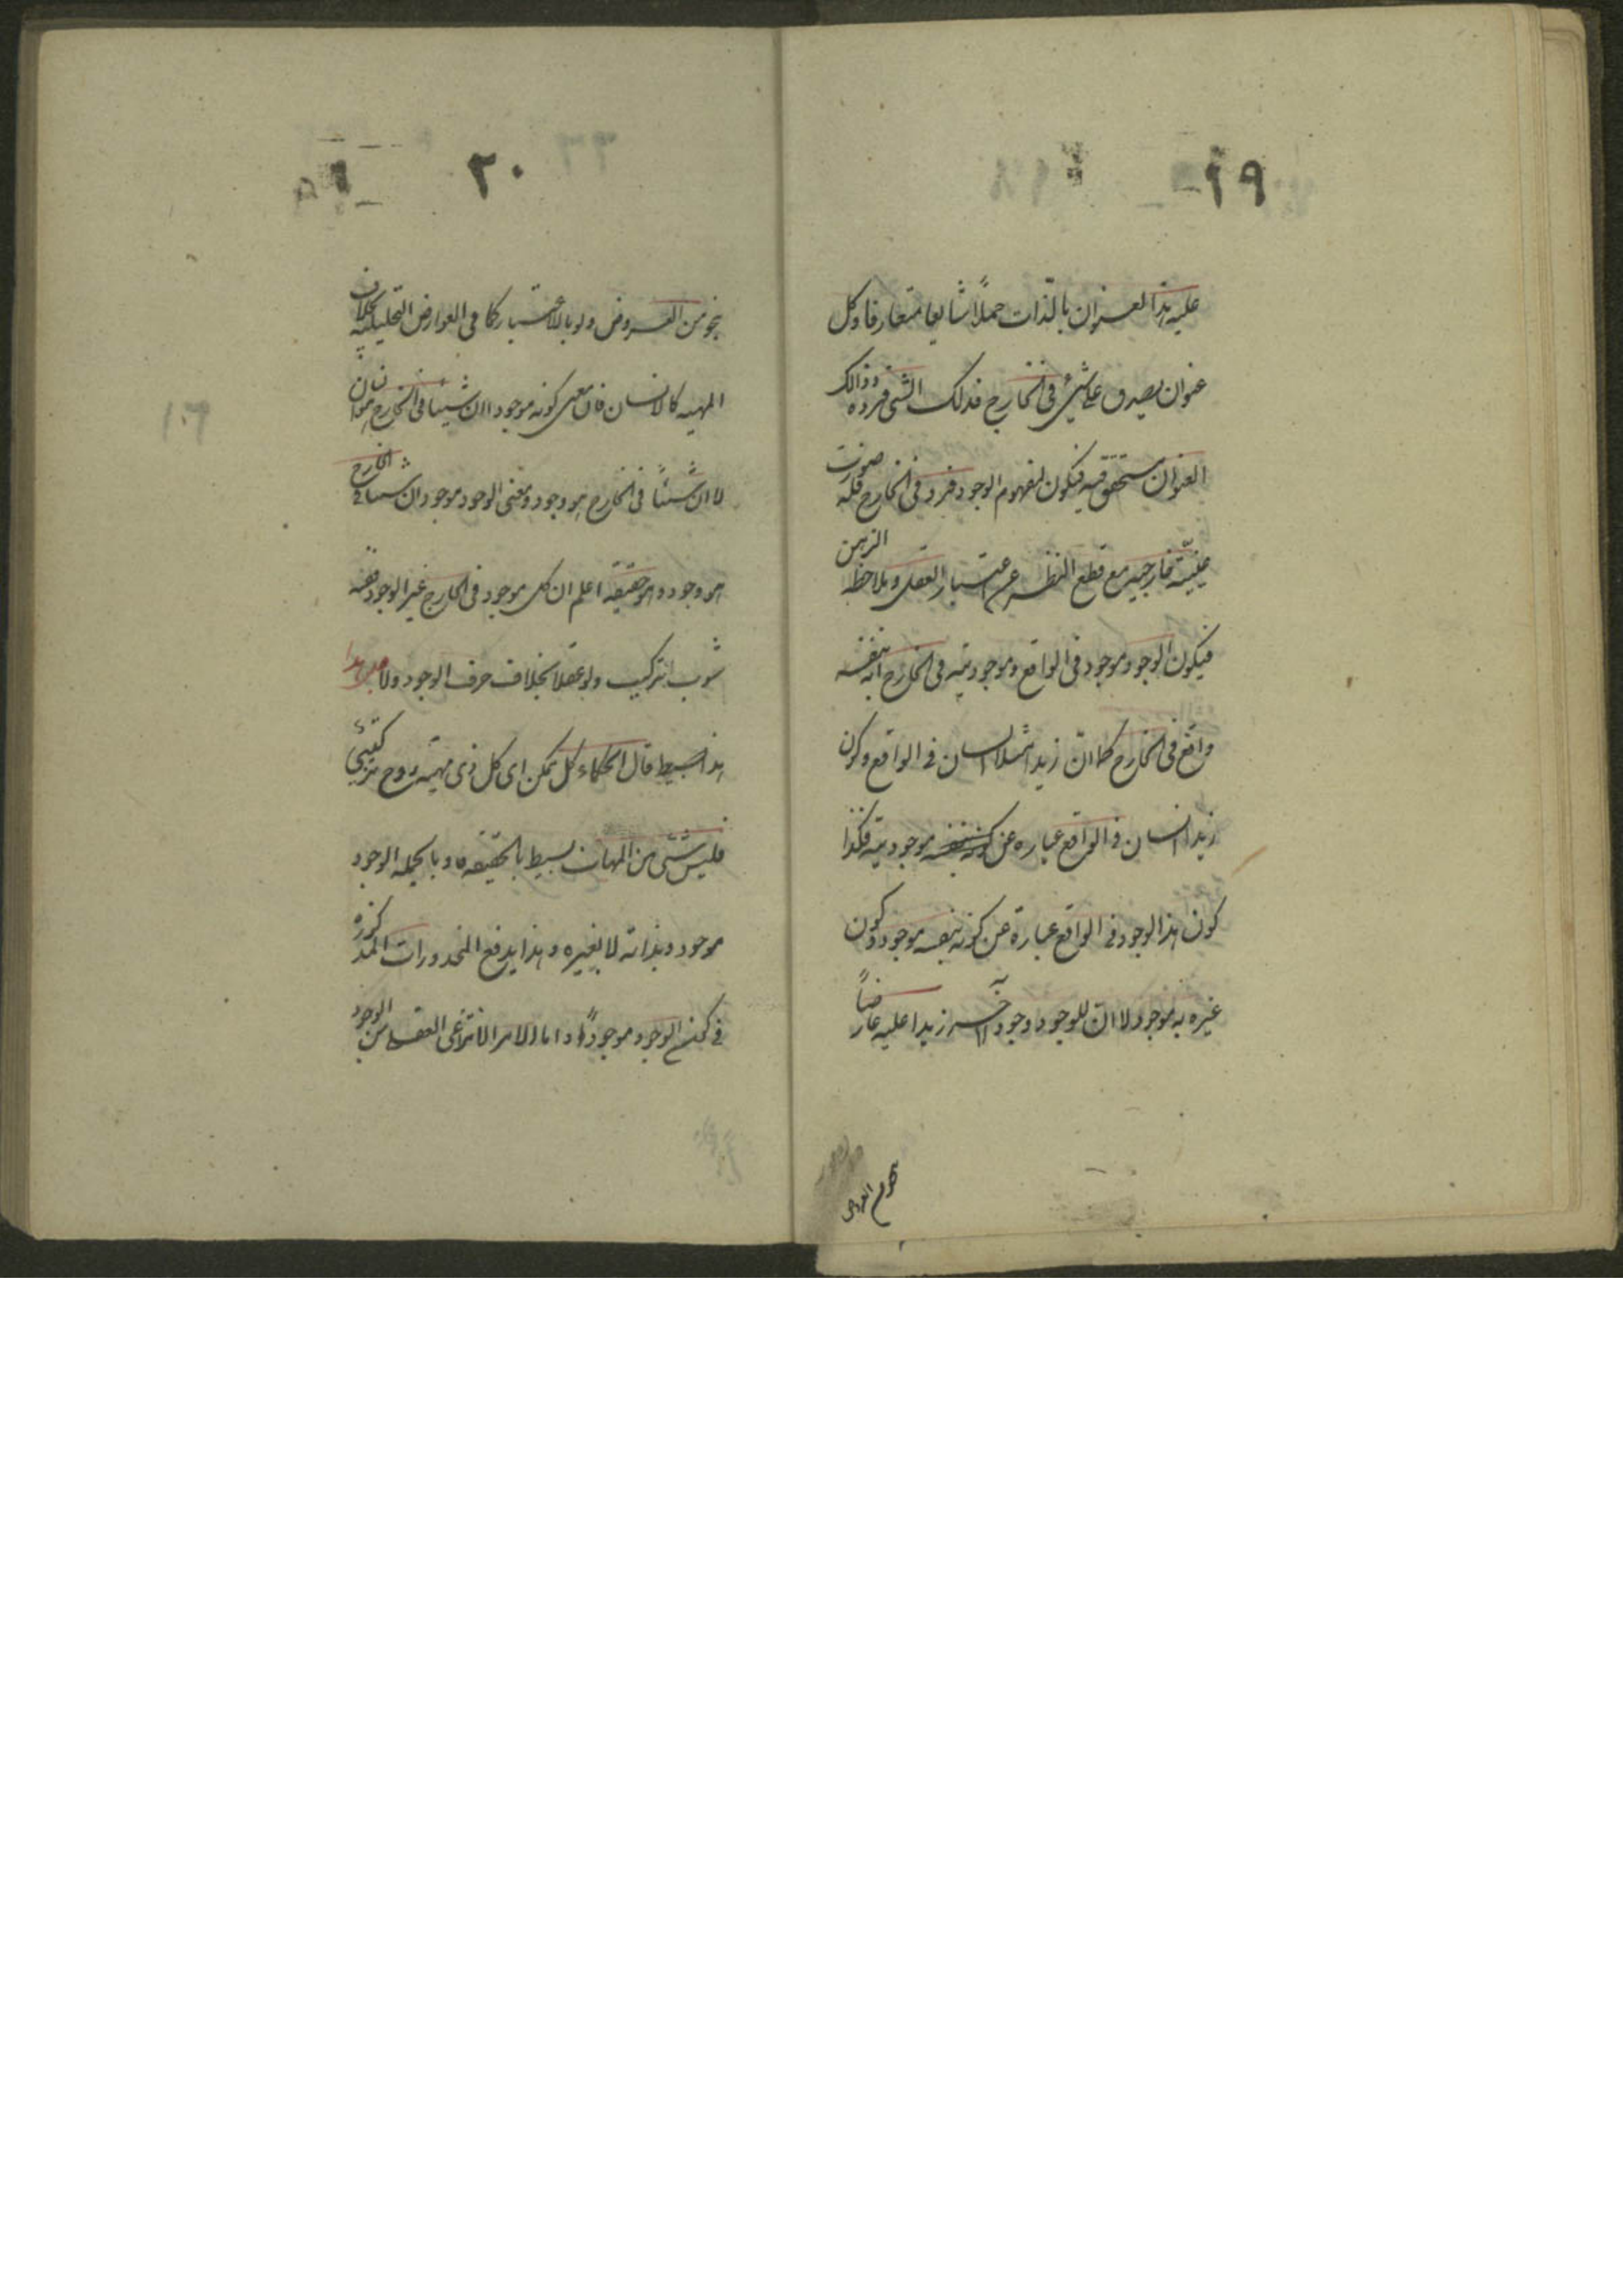 ١٩
عليه هذا العنوان بالذات حملاً شايعا متعارفا وكل
عنوان يصدق على شيئ في الخارج فذلك الشئ فرده وذالك
العنوان متحقق فيه فيكون لمفهوم الوجود فرد في الخارج فله صورت
عينيّة خارجيه مع قطع النظر عن اعتبار العقل وملاحظة الذهن
فيكون الوجود موجود في الواقع وموجوديته في الخارج انه بنفسه
واقع في الخارج كما انّ زيدا مثلا انسان في الواقع وكون
زيد انسان في الواقع عباره عن موجوديته فكذا
كون هذا الوجود في الواقع عبارة عن كونه بنفسه موجود وكون
غيره به موجود لا ان للوجود وجود اخر زيدا عليه عارضاً به
نحو من العروض
٢٠
نحو من العروض ولو بالاعتبار كما في العوارض التحليليه بخلاف
المهيه كالانسان فان معنى كونه موجودا ان شيئا في الخارج هو انسان
لا ان شيئاً في الخارج هو وجود ومعنى الوجود موجود ان شيئا في الخارج
هو وجود وهو حقيقه اعلم ان كل موجود في الخارج غير الوجود ففيه
شوب تركيب ولو عقلا بخلاف صرف الوجود ولا
هذا بسيط قال الحكماء كل ممكن اى كل ذى مهيّه زوج تركيبيّ
فليس شئ من المهيات بسيط بالحقيقه وبالجمله الوجود
موجود بذاته لا بغيره وبهذا يدفع المحذورات المذكوره
في كون الوجود موجوداً واما الامر الانتزاعى العقلى من الوجود
١٠٦